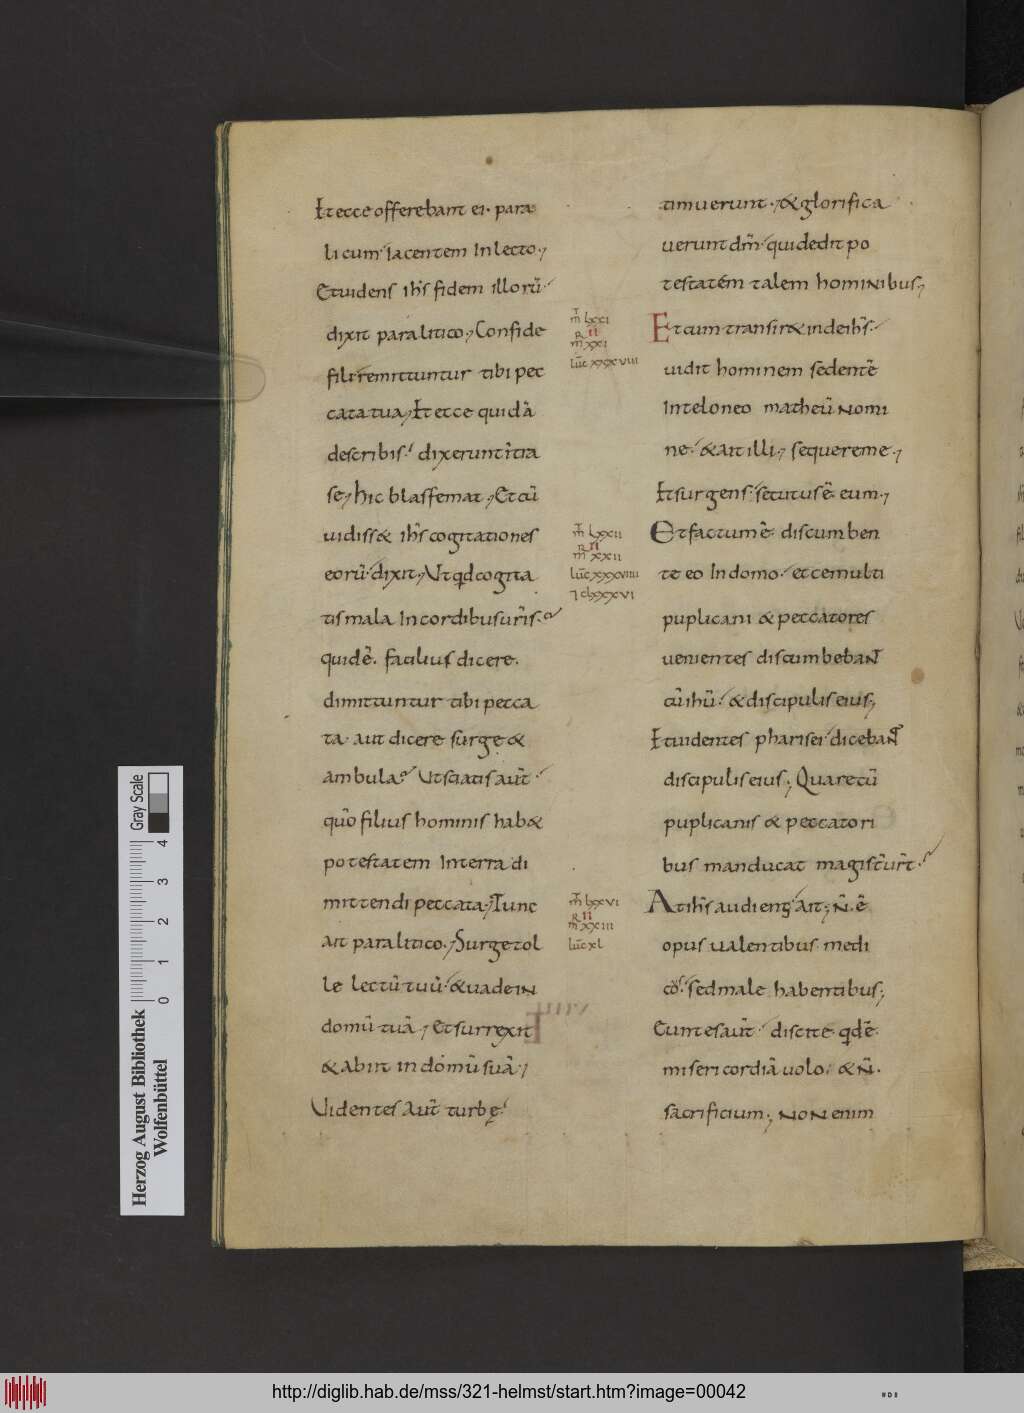 Et ecce offerebant ei· para
li cum iacentem in lecto·,
Et uidens ihs fidem illorū·
dixit paralitico, Confide
fili remittuntur tibi pec
cata tua, Et ecce quidā
de scribis·' dixerunt ītra
se, hic blasfemat, Et cū
uidiss& ihs cogitationes
eorū·' dixit, Ut qd cogita
tis mala in cordibus uris·
quid ē· facilius dicere·
dimittuntur tibi pecca
ta· aut dicere surge &
ambula? Ut sciatis aut̄·
quō filius hominis hab&
potestatem in terra di
mittendi peccata, Tunc
ait paralitico·, Surge tol
le lectū tuū·' & uade in
domū tuā·, Et surrexit
& abiit in domū suā·,
Uidentes aut̄ turbę·'
m̄ lxxi
R II
m̄ xxi
luc̄ xxxviii
m̄ lxxii
R II
m̄ xxii
luc̄ xxxviiii
m̄ lxxvi
R II
m̄ xxiii
luc̄ xl
timuerunt·, & glorifica
uerunt dm̄·' qui dedit po
testatem talem hominibus,
Et cum transir& inde ihs·'
uidit hominem sedentē
in teloneo matheū nomi
ne·' & ait illi, sequere me·,
Et surgens·' secutus ē· eum·,
Et factum ē· discumben
te eo in domo·' et ce multi
puplicani & peccatores
uenientes discumbebant
cū ihū·' & discipulis eius,
Et uidentes pharisei·' dicebant
discipulis eius, Quare cū
puplicanis & peccatori
bus manducat magist̄ urt̄·
At ihs audiens·' ait, N̄· ē
opus ualentibus· medi
co·' sed male habentibus,
Euntes aut̄·' discite· qd ē·
misericordiā uolo·' & N̄·
sacrificium, non enim
Gray Scale
4
3
2
1
0
Herzog August Bibliothek
Wolfenbüttel
http://diglib.hab.de/mss/321-helmst/start.htm?image=00042